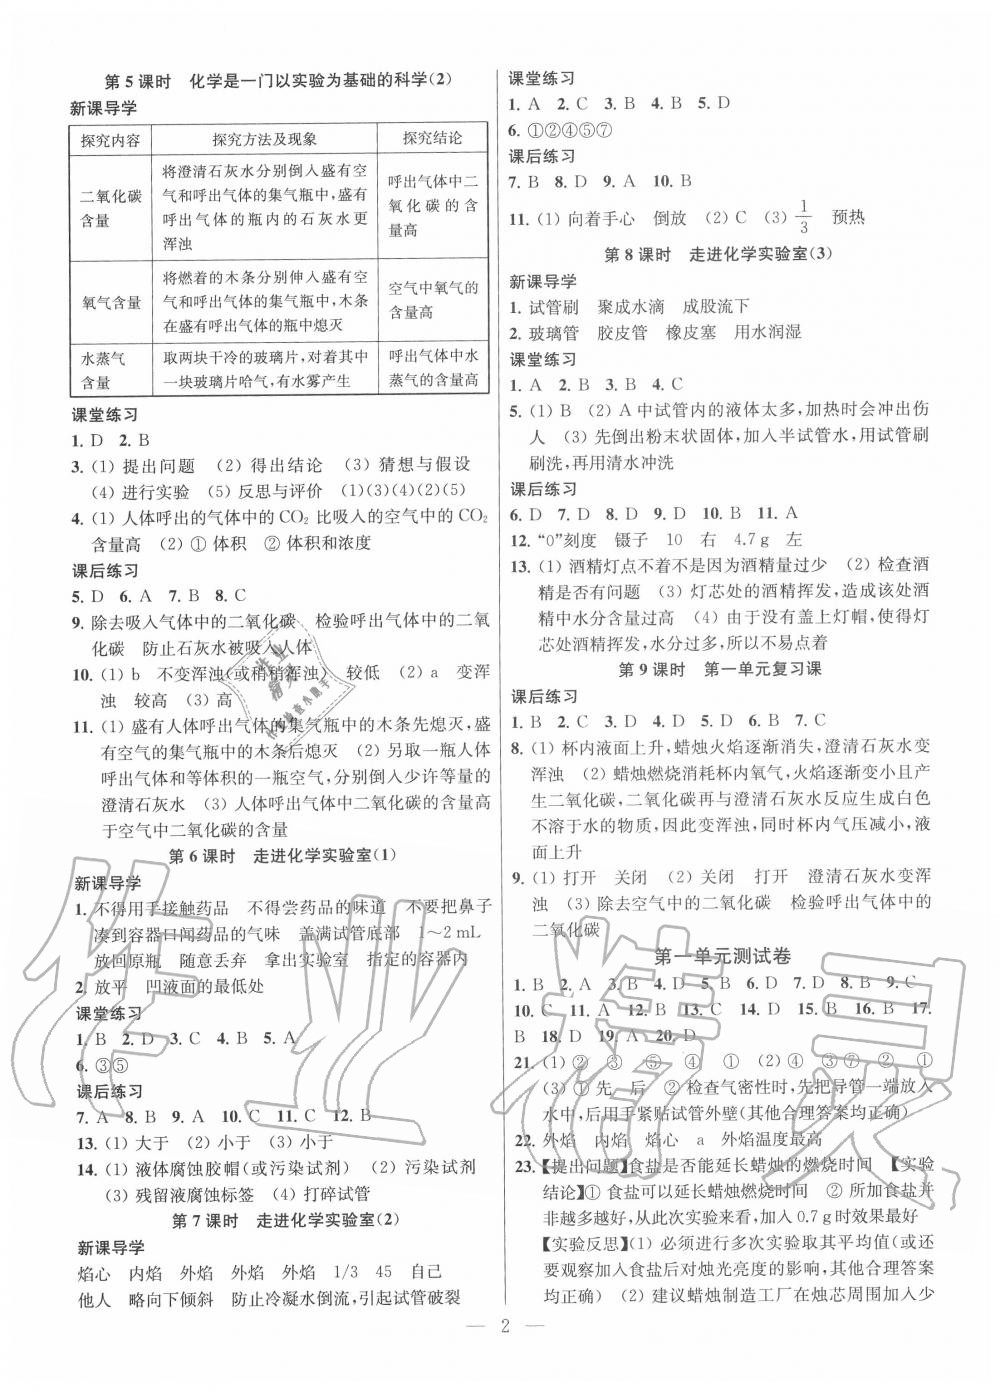 第5课时 化学是一门以实验为基础的科学(2)
新课导学
探究内容 探究方法及现象 探究结论
二氧化碳含量 将澄清石灰水分别倒入盛有空气和呼出气体的集气瓶中,盛有呼出气体的瓶内的石灰水更浑浊 呼出气体中二氧化碳的含量高
氧气含量 将燃着的木条分别伸入盛有空气和呼出气体的集气瓶中,木条在盛有呼出气体的瓶中熄灭 空气中氧气的含量高
水蒸气含量 取两块干冷的玻璃片,对着其中一块玻璃片哈气,有水雾产生 呼出气体中水蒸气的含量高
课堂练习
1. D 2. B
3. (1) 提出问题 (2) 得出结论 (3) 猜想与假设
(4) 进行实验 (5) 反思与评价 (1)(3)(4)(2)(5)
4. (1) 人体呼出的气体中的CO₂比吸入的空气中的CO₂
含量高 (2) ① 体积 ② 体积和浓度
课后练习
5. D 6. A 7. B 8. C
9. 除去吸入气体中的二氧化碳 检验呼出气体中的二氧
化碳 防止石灰水被吸入人体
10. (1) b 不变浑浊(或稍稍浑浊) 较低 (2) a 变浑
浊 较高 (3) 高
11. (1) 盛有人体呼出气体的集气瓶中的木条先熄灭,盛
有空气的集气瓶中的木条后熄灭 (2) 另取一瓶人体
呼出气体和等体积的一瓶空气,分别倒入少许等量的
澄清石灰水 (3) 人体呼出气体中二氧化碳的含量高
于空气中二氧化碳的含量
第6课时 走进化学实验室(1)
新课导学
1. 不得用手接触药品 不得尝药品的味道 不要把鼻子
凑到容器口闻药品的气味 盖满试管底部 1～2 mL
放回原瓶 随意丢弃 拿出实验室 指定的容器内
2. 放平 凹液面的最低处
课堂练习
1. B 2. D 3. C 4. B 5. A
6. ③⑤
课后练习
7. A 8. B 9. A 10. C 11. C 12. B
13. (1) 大于 (2) 小于 (3) 小于
14. (1) 液体腐蚀胶帽(或污染试剂) (2) 污染试剂
(3) 残留液腐蚀标签 (4) 打碎试管
第7课时 走进化学实验室(2)
新课导学
焰心 内焰 外焰 外焰 外焰 1/3 45 自己
他人 略向下倾斜 防止冷凝水倒流,引起试管破裂
课堂练习
1. A 2. C 3. B 4. B 5. D
6. ①②④⑤⑦
课后练习
7. B 8. D 9. A 10. B
11. (1) 向着手心 倒放 (2) C (3) 1/3 预热
第8课时 走进化学实验室(3)
新课导学
1. 试管刷 聚成水滴 成股流下
2. 玻璃管 胶皮管 橡皮塞 用水润湿
课堂练习
1. A 2. B 3. B 4. C
5. (1) B (2) A中试管内的液体太多,加热时会冲出伤
人 (3) 先倒出粉末状固体,加入半试管水,用试管刷
刷洗,再用清水冲洗
课后练习
6. D 7. D 8. B 9. D 10. B 11. A
12. “0”刻度 镊子 10 右 4.7 g 左
13. (1) 酒精灯点不着不是因为酒精量过少 (2) 检查酒
精是否有问题 (3) 灯芯处的酒精挥发,造成该处酒
精中水分含量过高 (4) 由于没有盖上灯帽,使得灯
芯处酒精挥发,水分过多,所以不易点着
第9课时 第一单元复习课
课后练习
1. B 2. C 3. D 4. D 5. D 6. B 7. C
8. (1) 杯内液面上升,蜡烛火焰逐渐消失,澄清石灰水变
浑浊 (2) 蜡烛燃烧消耗杯内氧气,火焰逐渐变小且产
生二氧化碳,二氧化碳再与澄清石灰水反应生成白色
不溶于水的物质,因此变浑浊,同时杯内气压减小,液
面上升
9. (1) 打开 关闭 (2) 关闭 打开 澄清石灰水变浑
浊 (3) 除去空气中的二氧化碳 检验呼出气体中的
二氧化碳
第一单元测试卷
1. B 2. A 3. B 4. D 5. B 6. D 7. D 8. B 9. C
10. C 11. A 12. B 13. C 14. D 15. B 16. B 17.
B 18. D 19. A 20. D
21. (1) ② ③ ⑤ ④ ① (2) ④ ③⑦ ② ①
(3) ① 先 后 ② 检查气密性时,先把导管一端放入
水中,后用手紧贴试管外壁(其他合理答案均正确)
22. 外焰 内焰 焰心 a 外焰温度最高
23. 【提出问题】食盐是否能延长蜡烛的燃烧时间 【实验
结论】① 食盐可以延长蜡烛燃烧时间 ② 所加食盐并
非越多越好,从此次实验来看,加入0.7 g时效果最好
【实验反思】(1) 必须进行多次实验取其平均值(或还
要观察加入食盐后对烛光亮度的影响,其他合理答案
均正确) (2) 建议蜡烛制造工厂在烛芯周围加入少
— 2 —
作业精灵